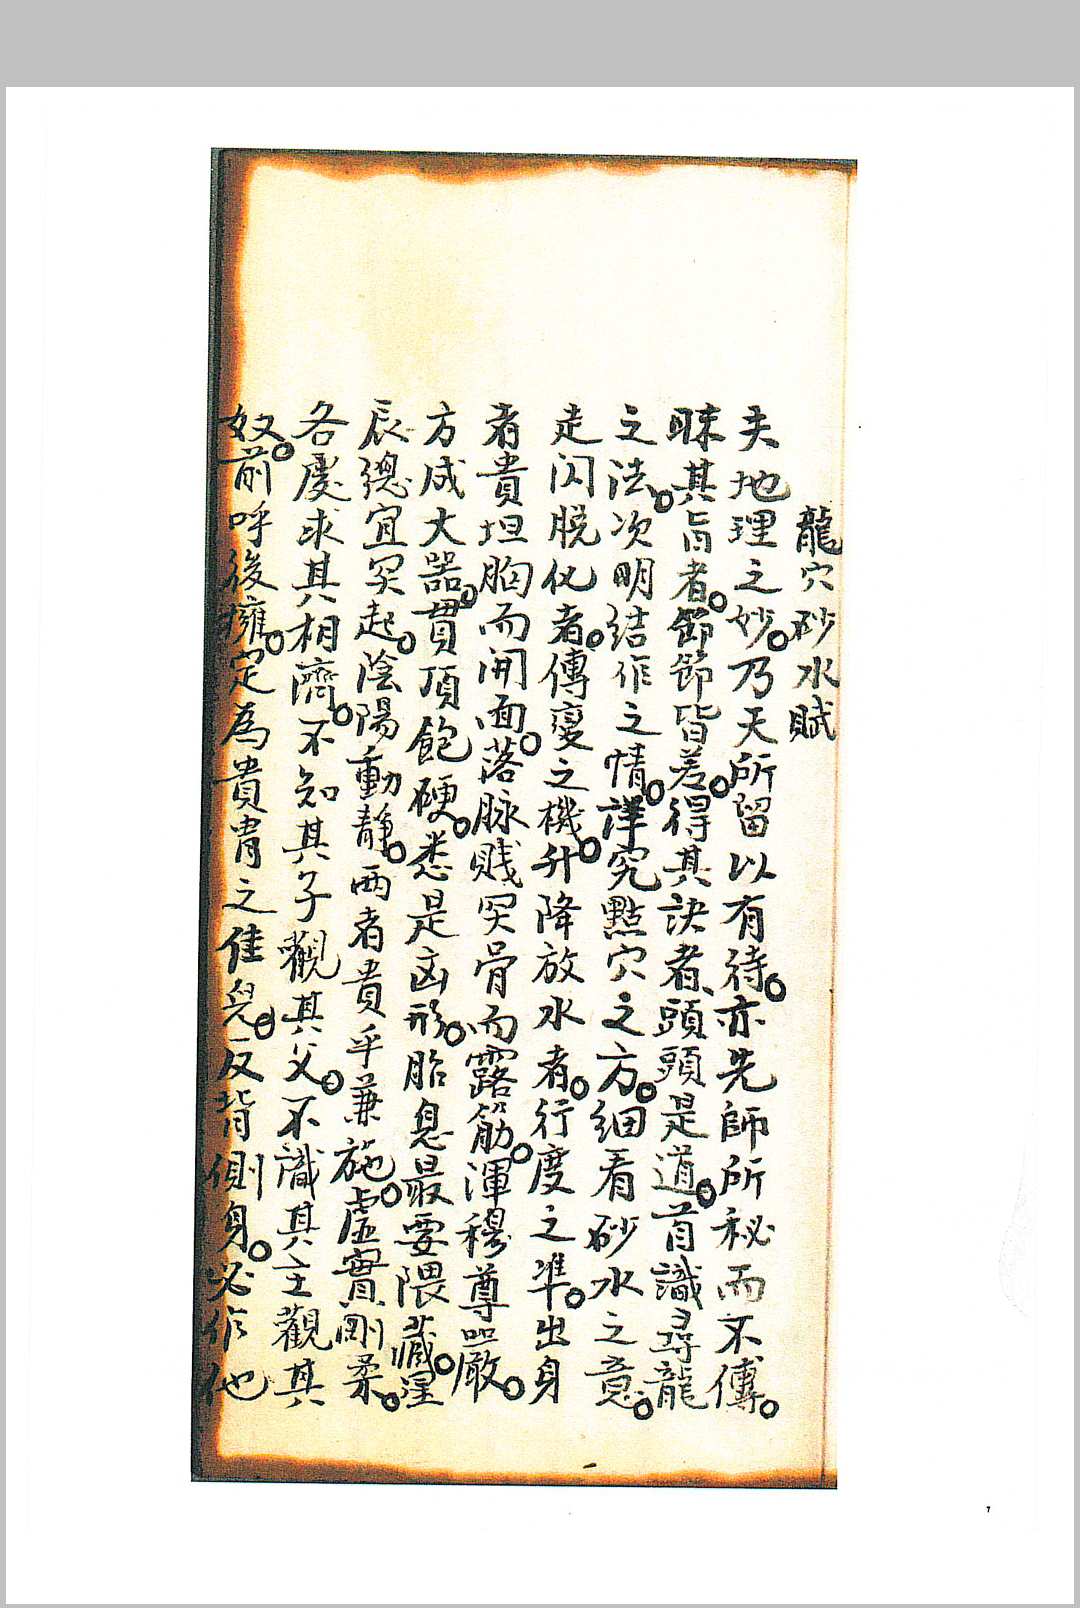 龍穴砂水賦
夫地理之妙。乃天所留以有待。亦先師所秘而不傳。
昧其旨者。節節皆差。得其訣者、頭頭是道。首識尋龍
之法。次明結作之情。詳究點穴之方。細看砂水之意。
走閃脫化者。傳變之機。升降放水者。行度之準。出身
者貴坦胸而開面。落脉賤突骨而露筋。渾穆尊嚴。
方成大器。貫頂飽硬。悉是凶形。胎息最要隈藏。星
辰總宜突起。陰陽動靜。兩者貴乎兼施。虛實剛柔。
各處求其相濟。不知其子觀其父。不識其主觀其
奴。前呼後擁。定為貴胄之佳兒。反背側身。必作他
7